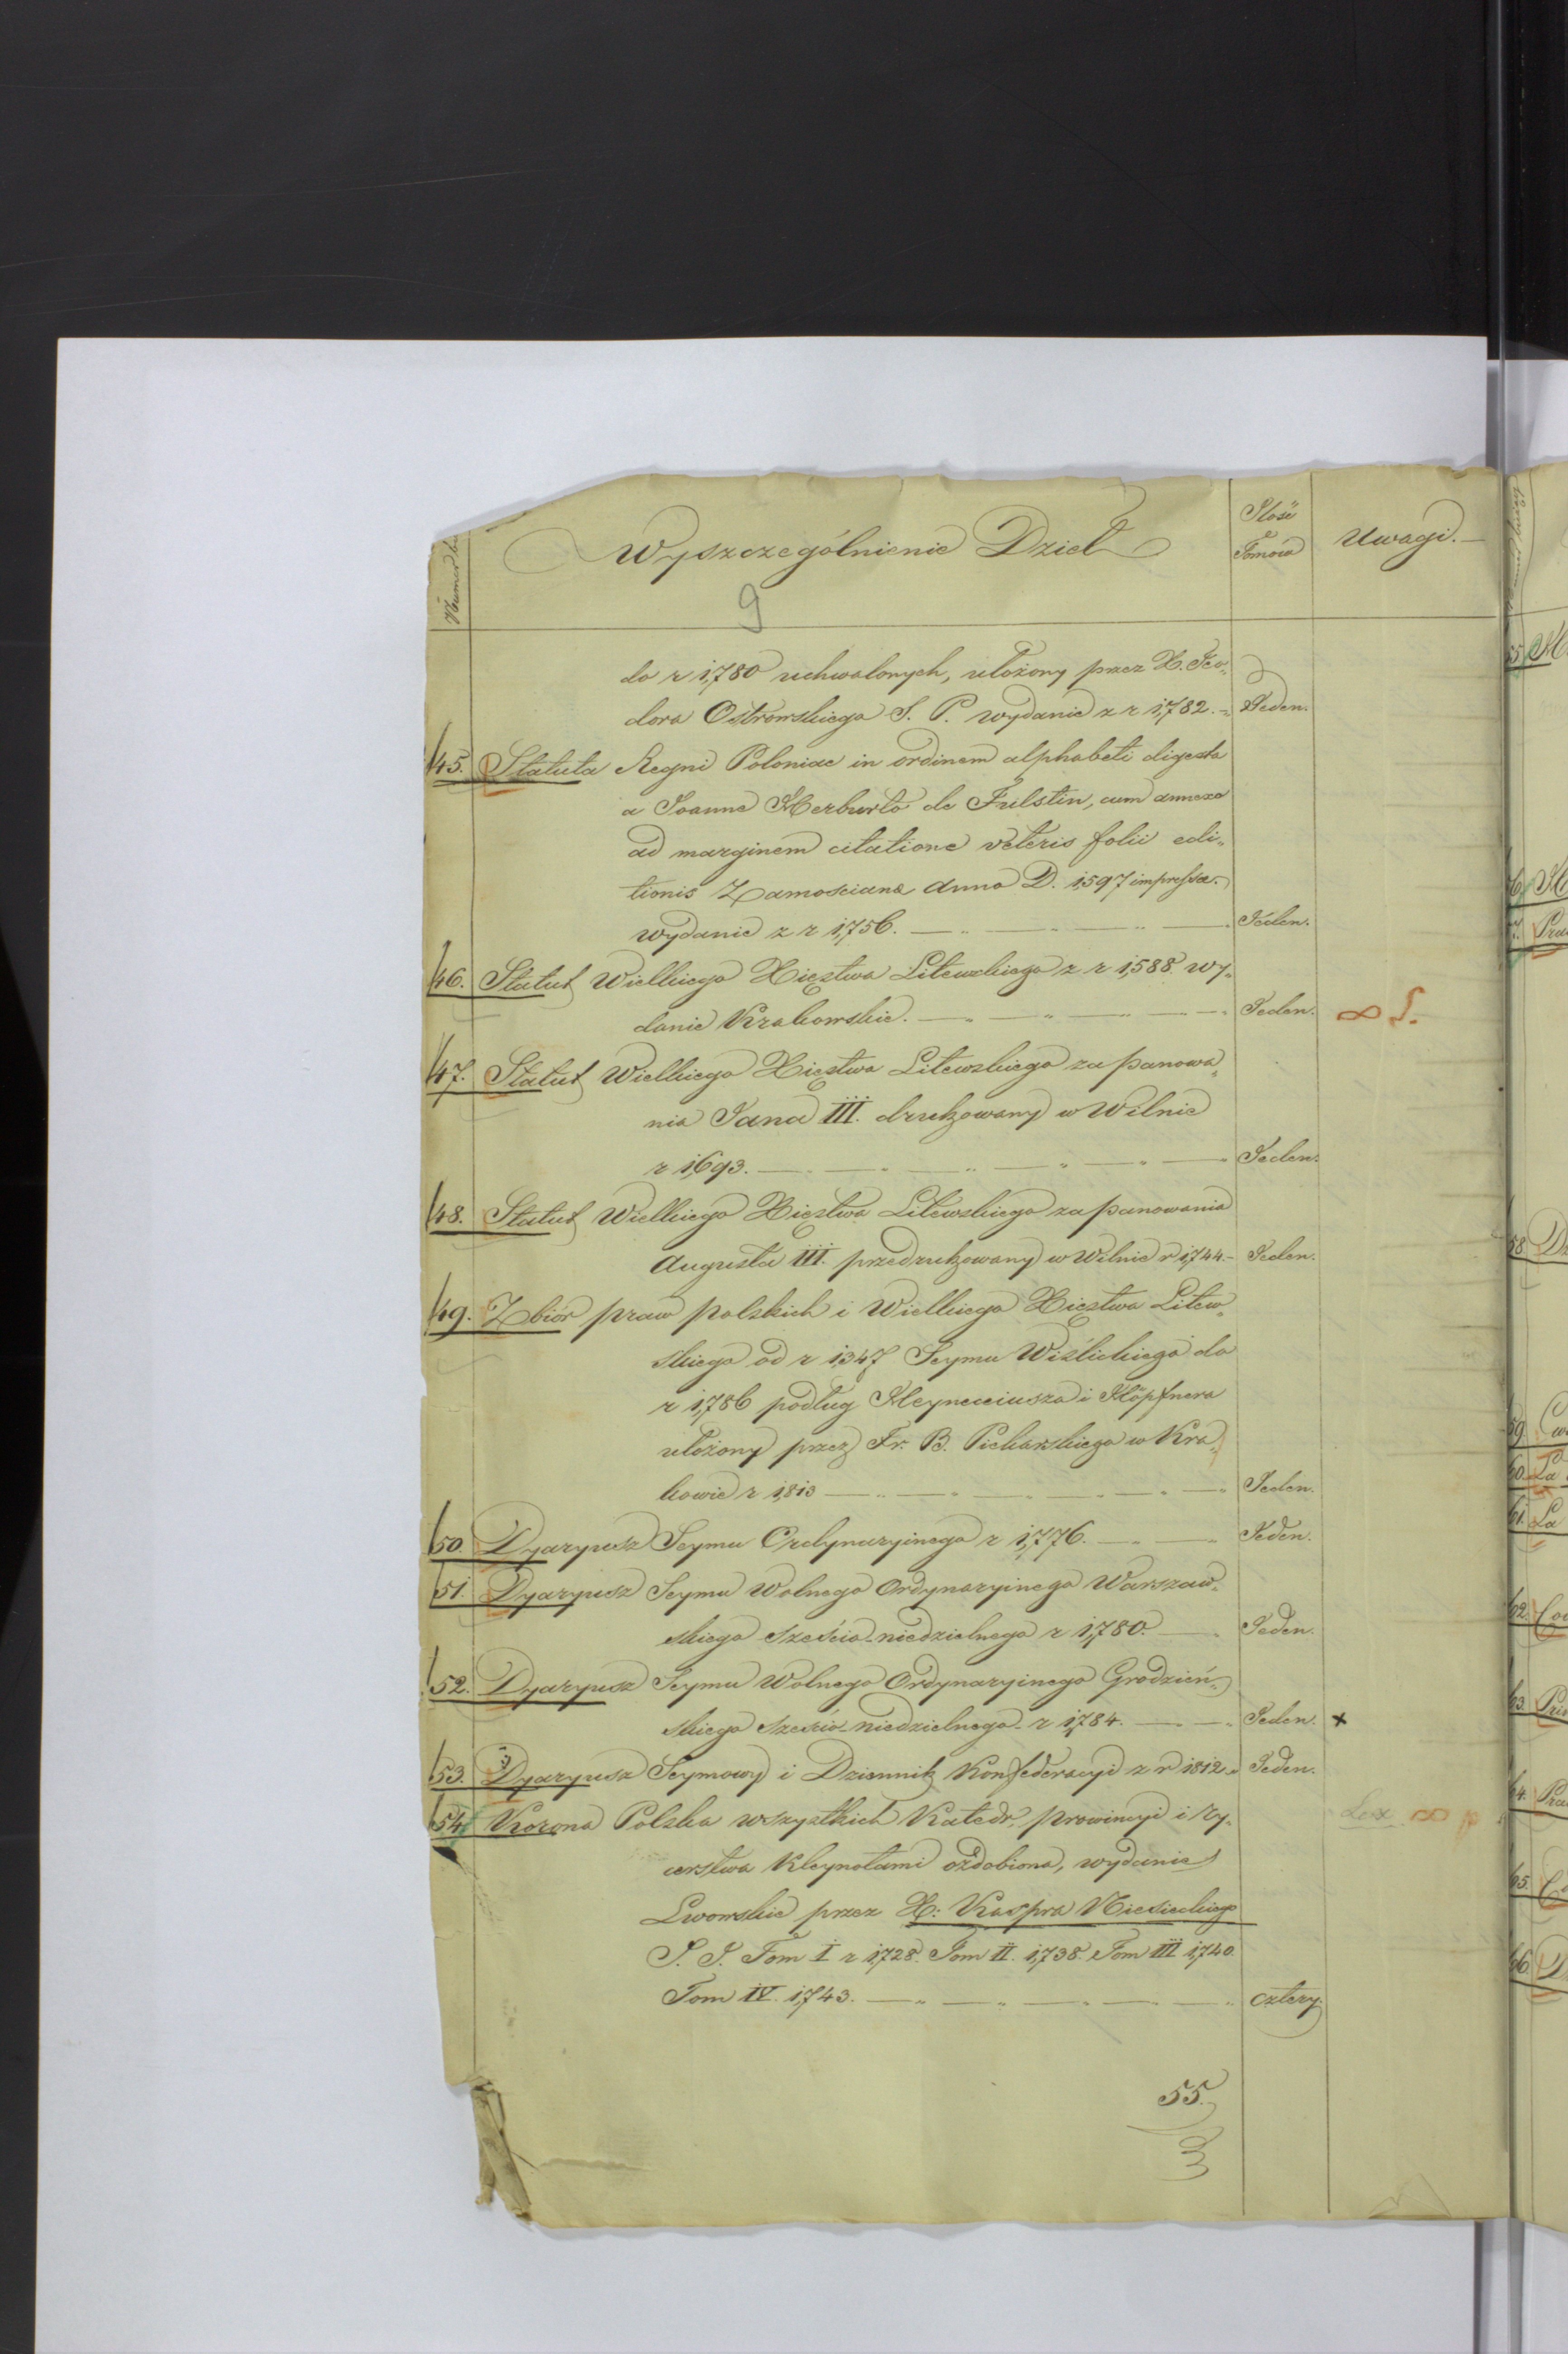 Numer
Wyszczególnienie Dzieł
Ilość
Tomów
Uwagi.
9
do r 1780 uchwalonych, ułożony przez X. Teo„
dora Ostrowskiego S. P. wydanie z r 1782. Jeden.
45. Statuta Regni Poloniae in ordinem alphabeti digesta
a Joanne Herburto de Fulstin, cum annexa
ad marginem citatione veteris folii edi„
tionis Zamosciana Anno D. 1597 impressa.
wydanie z r 1756. Jeden.
46. Statut Wielkiego Xięstwa Litewskiego z r 1588. wy„
danie Krakowskie. Jeden. ∞
47. Statut Wielkiego Xięstwa Litewskiego za panowa„
nia Jana III. drukowany w Wilnie
r 1693. Jeden.
48. Statut Wielkiego Xięstwa Litewskiego za panowania
Augusta III. przedrukowany w Wilnie r 1744. Jeden.
49. Zbiór praw polskich i Wielkiego Xięstwa Litew„
skiego od r 1347 Seymu Wiślickiego do
r 1786 podług Heynecciusza i Höpfnera
ułożony przez Fr. B. Piekarskiego w Kra„
kowie r 1813 Jeden.
50. Dyaryusz Seymu Ordynaryinego r 1776. Jeden.
51. Dyaryusz Seymu Wolnego Ordynaryinego Warszaw„
skiego sześcio-niedzielnego r 1780. Jeden.
52. Dyaryusz Seymu Wolnego Ordynaryinego Grodzień„
skiego sześcio-niedzielnego r 1784. Jeden. x
53. Dyaryusz Seymowy i Dziennik Konfederacyi z r 1812 Jeden.
54. Korona Polska wszystkich Katedr, prowincyi i Ry„
cerstwa Kleynotami ozdobiona, wydanie
Lwowskie przez X: Kaspra Niesieckiego
S. J. Tom I r 1728. Tom II. 1738. Tom III 1740.
Tom IV. 1743. cztery.
Lex ∞
55.